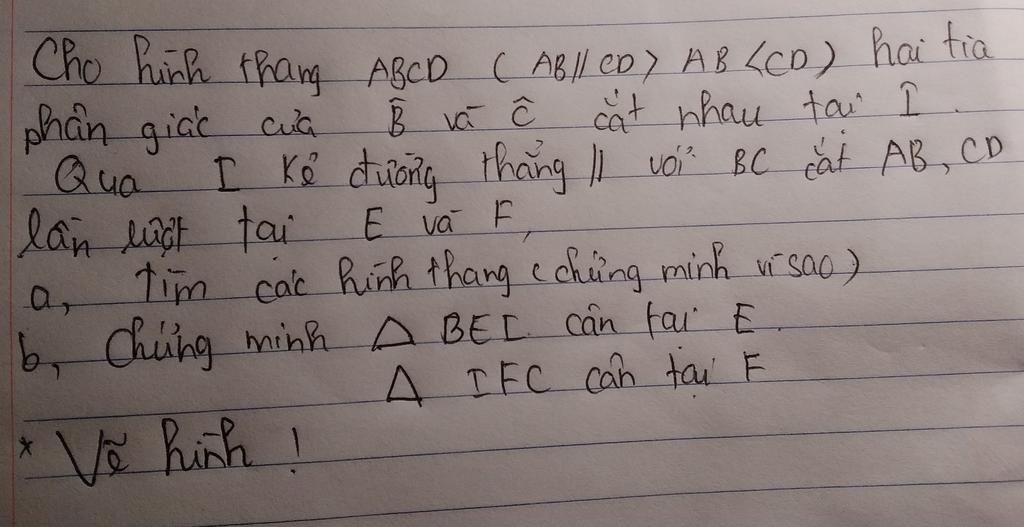 Cho hình thang ABCD ( AB // CD > AB < CD ) hai tia
phân giác của B̂ và Ĉ cắt nhau tại I.
Qua I kẻ đường thẳng // với BC cắt AB, CD
lần lượt tại E và F,
a, Tìm các hình thang (chứng minh vì sao)
b, Chứng minh Δ BEI cân tại E.
Δ IFC cân tại F
* Vẽ hình !